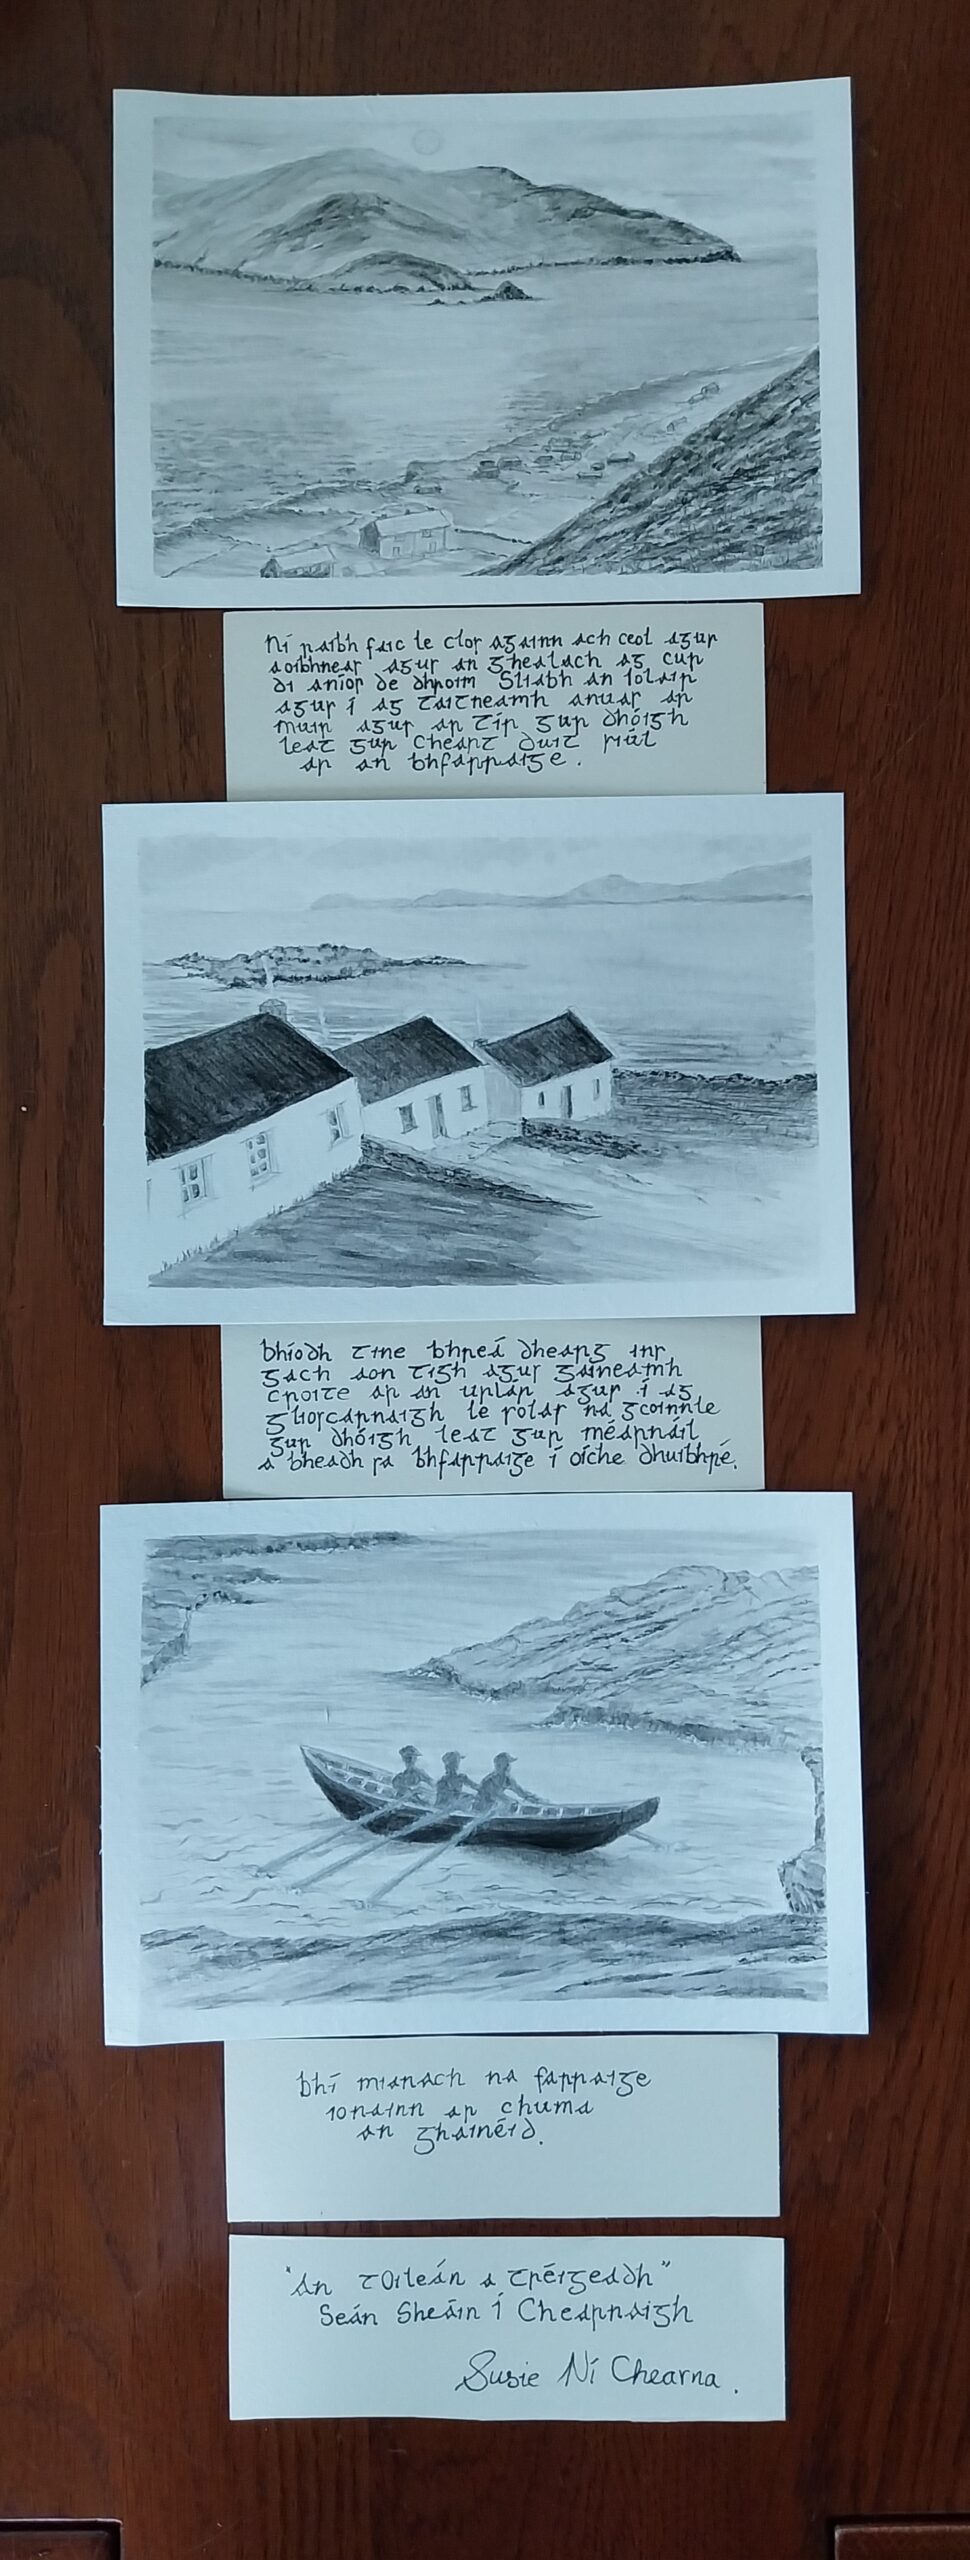 Ní raibh faic le clos againn ach ceol agus
aoibhneas agus an ghealach ag cur
di aníos de dhroim Sliabh an Iolair
agus í ag taitneamh anuas ar
muir agus ar tír gur dhóigh
leat gur cheart duit siúl
ar an bhfarraige.
Bhíodh tine bhreá dhearg ins
gach aon tigh agus gaineamh
croite ar an urlár agus í ag
gliorcarnaigh le solas na gcoinnle
gur dhóigh leat gur méarnáil
a bheadh sa bhfarraige í oíche dhuibhré.
Bhí mianach na farraige
ionainn ar chuma
an ghainéid.
"An tOileán a Tréigeadh"
Seán Sheáin Í Chearnaigh
Susie Ní Chearna.